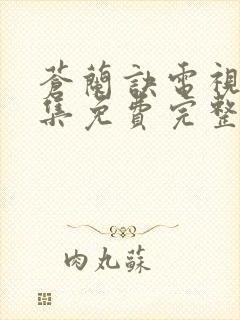 蒼蘭訣電視
集免費完整
肉丸蘇